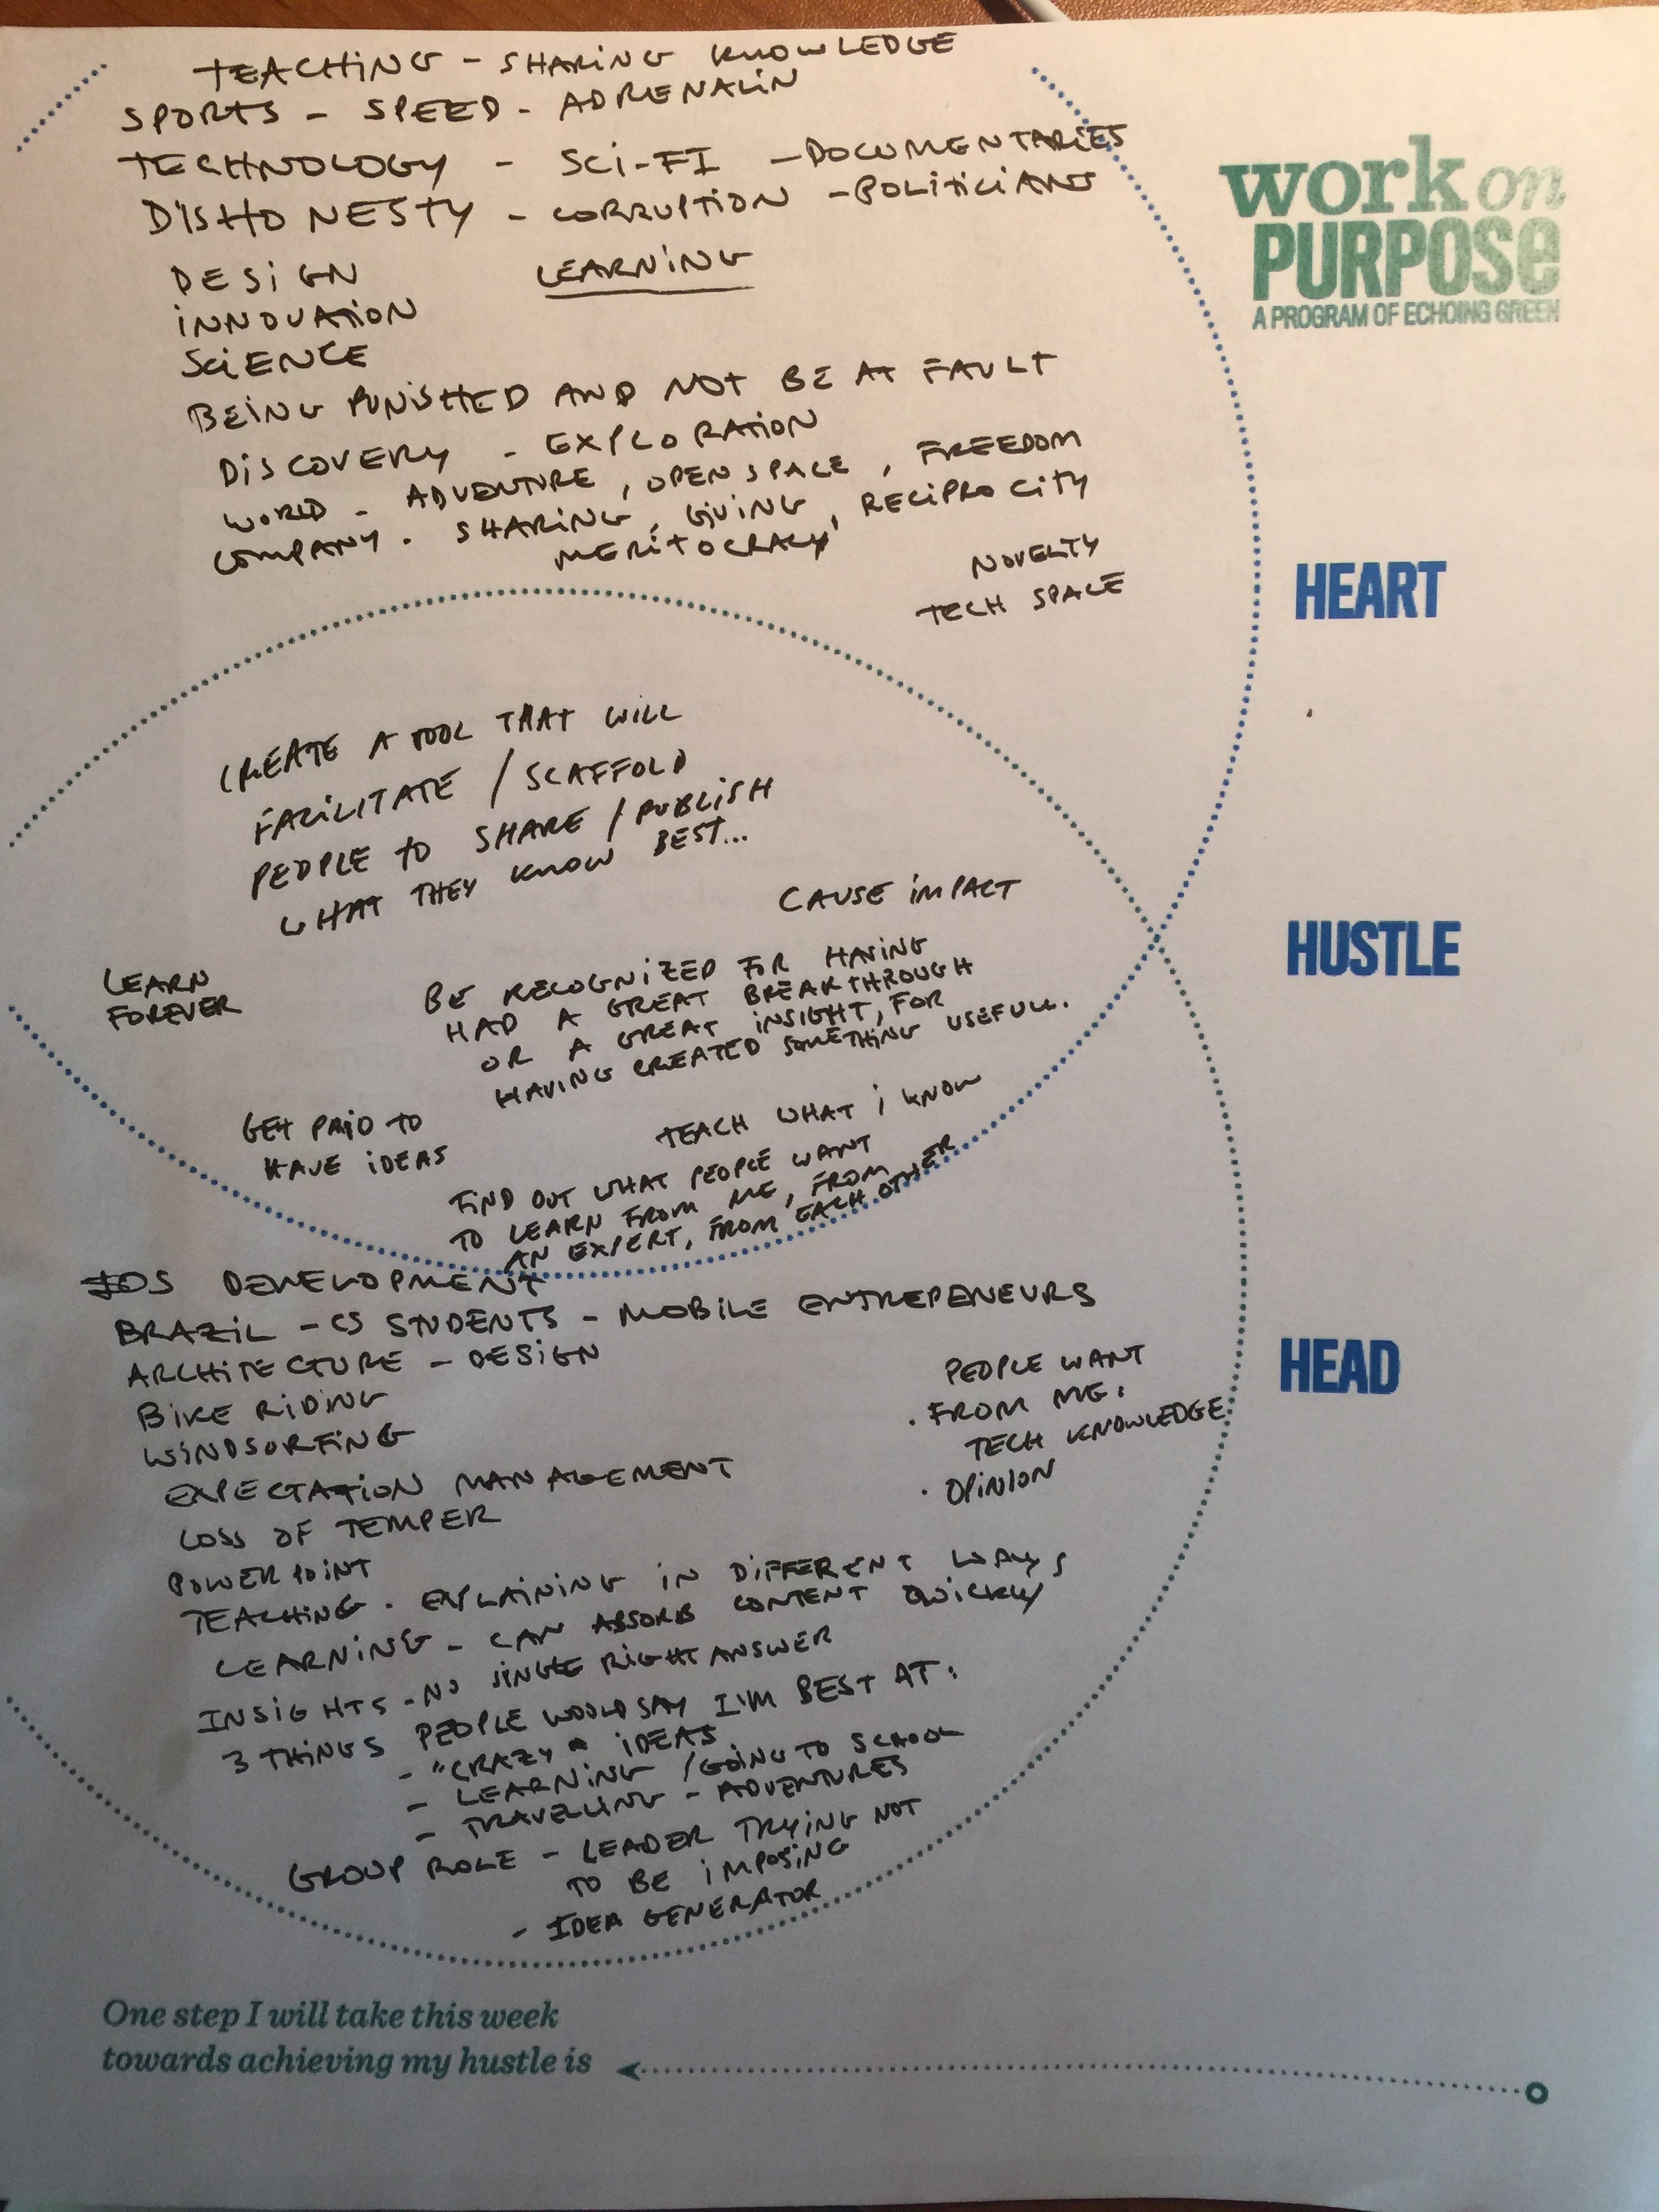 TEACHING - SHARING KNOWLEDGE
SPORTS - SPEED - ADRENALIN
TECHNOLOGY - SCI-FI - DOCUMENTARIES
DISHONESTY - CORRUPTION - POLITICIANS
DESIGN LEARNING
INNOVATION
SCIENCE
BEING PUNISHED AND NOT BE AT FAULT
DISCOVERY - EXPLORATION
WORLD - ADVENTURE, OPEN SPACE, FREEDOM
COMPANY. SHARING, GIVING, RECIPROCITY
MERITOCRACY
NOVELTY
TECH SPACE
work on
PURPOSE
A PROGRAM OF ECHOING GREEN
HEART
CREATE A TOOL THAT WILL
FACILITATE / SCAFFOLD
PEOPLE TO SHARE / PUBLISH
WHAT THEY KNOW BEST...
CAUSE IMPACT
LEARN
FOREVER
BE RECOGNIZED FOR HAVING
HAD A GREAT BREAKTHROUGH
OR A GREAT INSIGHT, FOR
HAVING CREATED SOMETHING USEFULL.
GET PAID TO
HAVE IDEAS
TEACH WHAT I KNOW
FIND OUT WHAT PEOPLE WANT
TO LEARN FROM ME, FROM
AN EXPERT, FROM EACH OTHER
HUSTLE
IOS DEVELOPMENT
BRAZIL - CS STUDENTS - MOBILE ENTREPENEURS
ARCHITECTURE - DESIGN
BIKE RIDING
WINDSURFING
EXPECTATION MANAGEMENT
LOSS OF TEMPER
POWERPOINT
PEOPLE WANT
. FROM ME.
TECH KNOWLEDGE
. OPINION
TEACHING. EXPLAINING IN DIFFERENT WAYS
LEARNING - CAN ABSORB CONTENT QUICKLY
INSIGHTS - NO SINGLE RIGHT ANSWER
3 THINGS PEOPLE WOULD SAY I'M BEST AT:
- "CRAZY" IDEAS
- LEARNING / GOING TO SCHOOL
- TRAVELLING - ADVENTURES
GROUP ROLE - LEADER TRYING NOT
TO BE IMPOSING
- IDEA GENERATOR
HEAD
One step I will take this week
towards achieving my hustle is